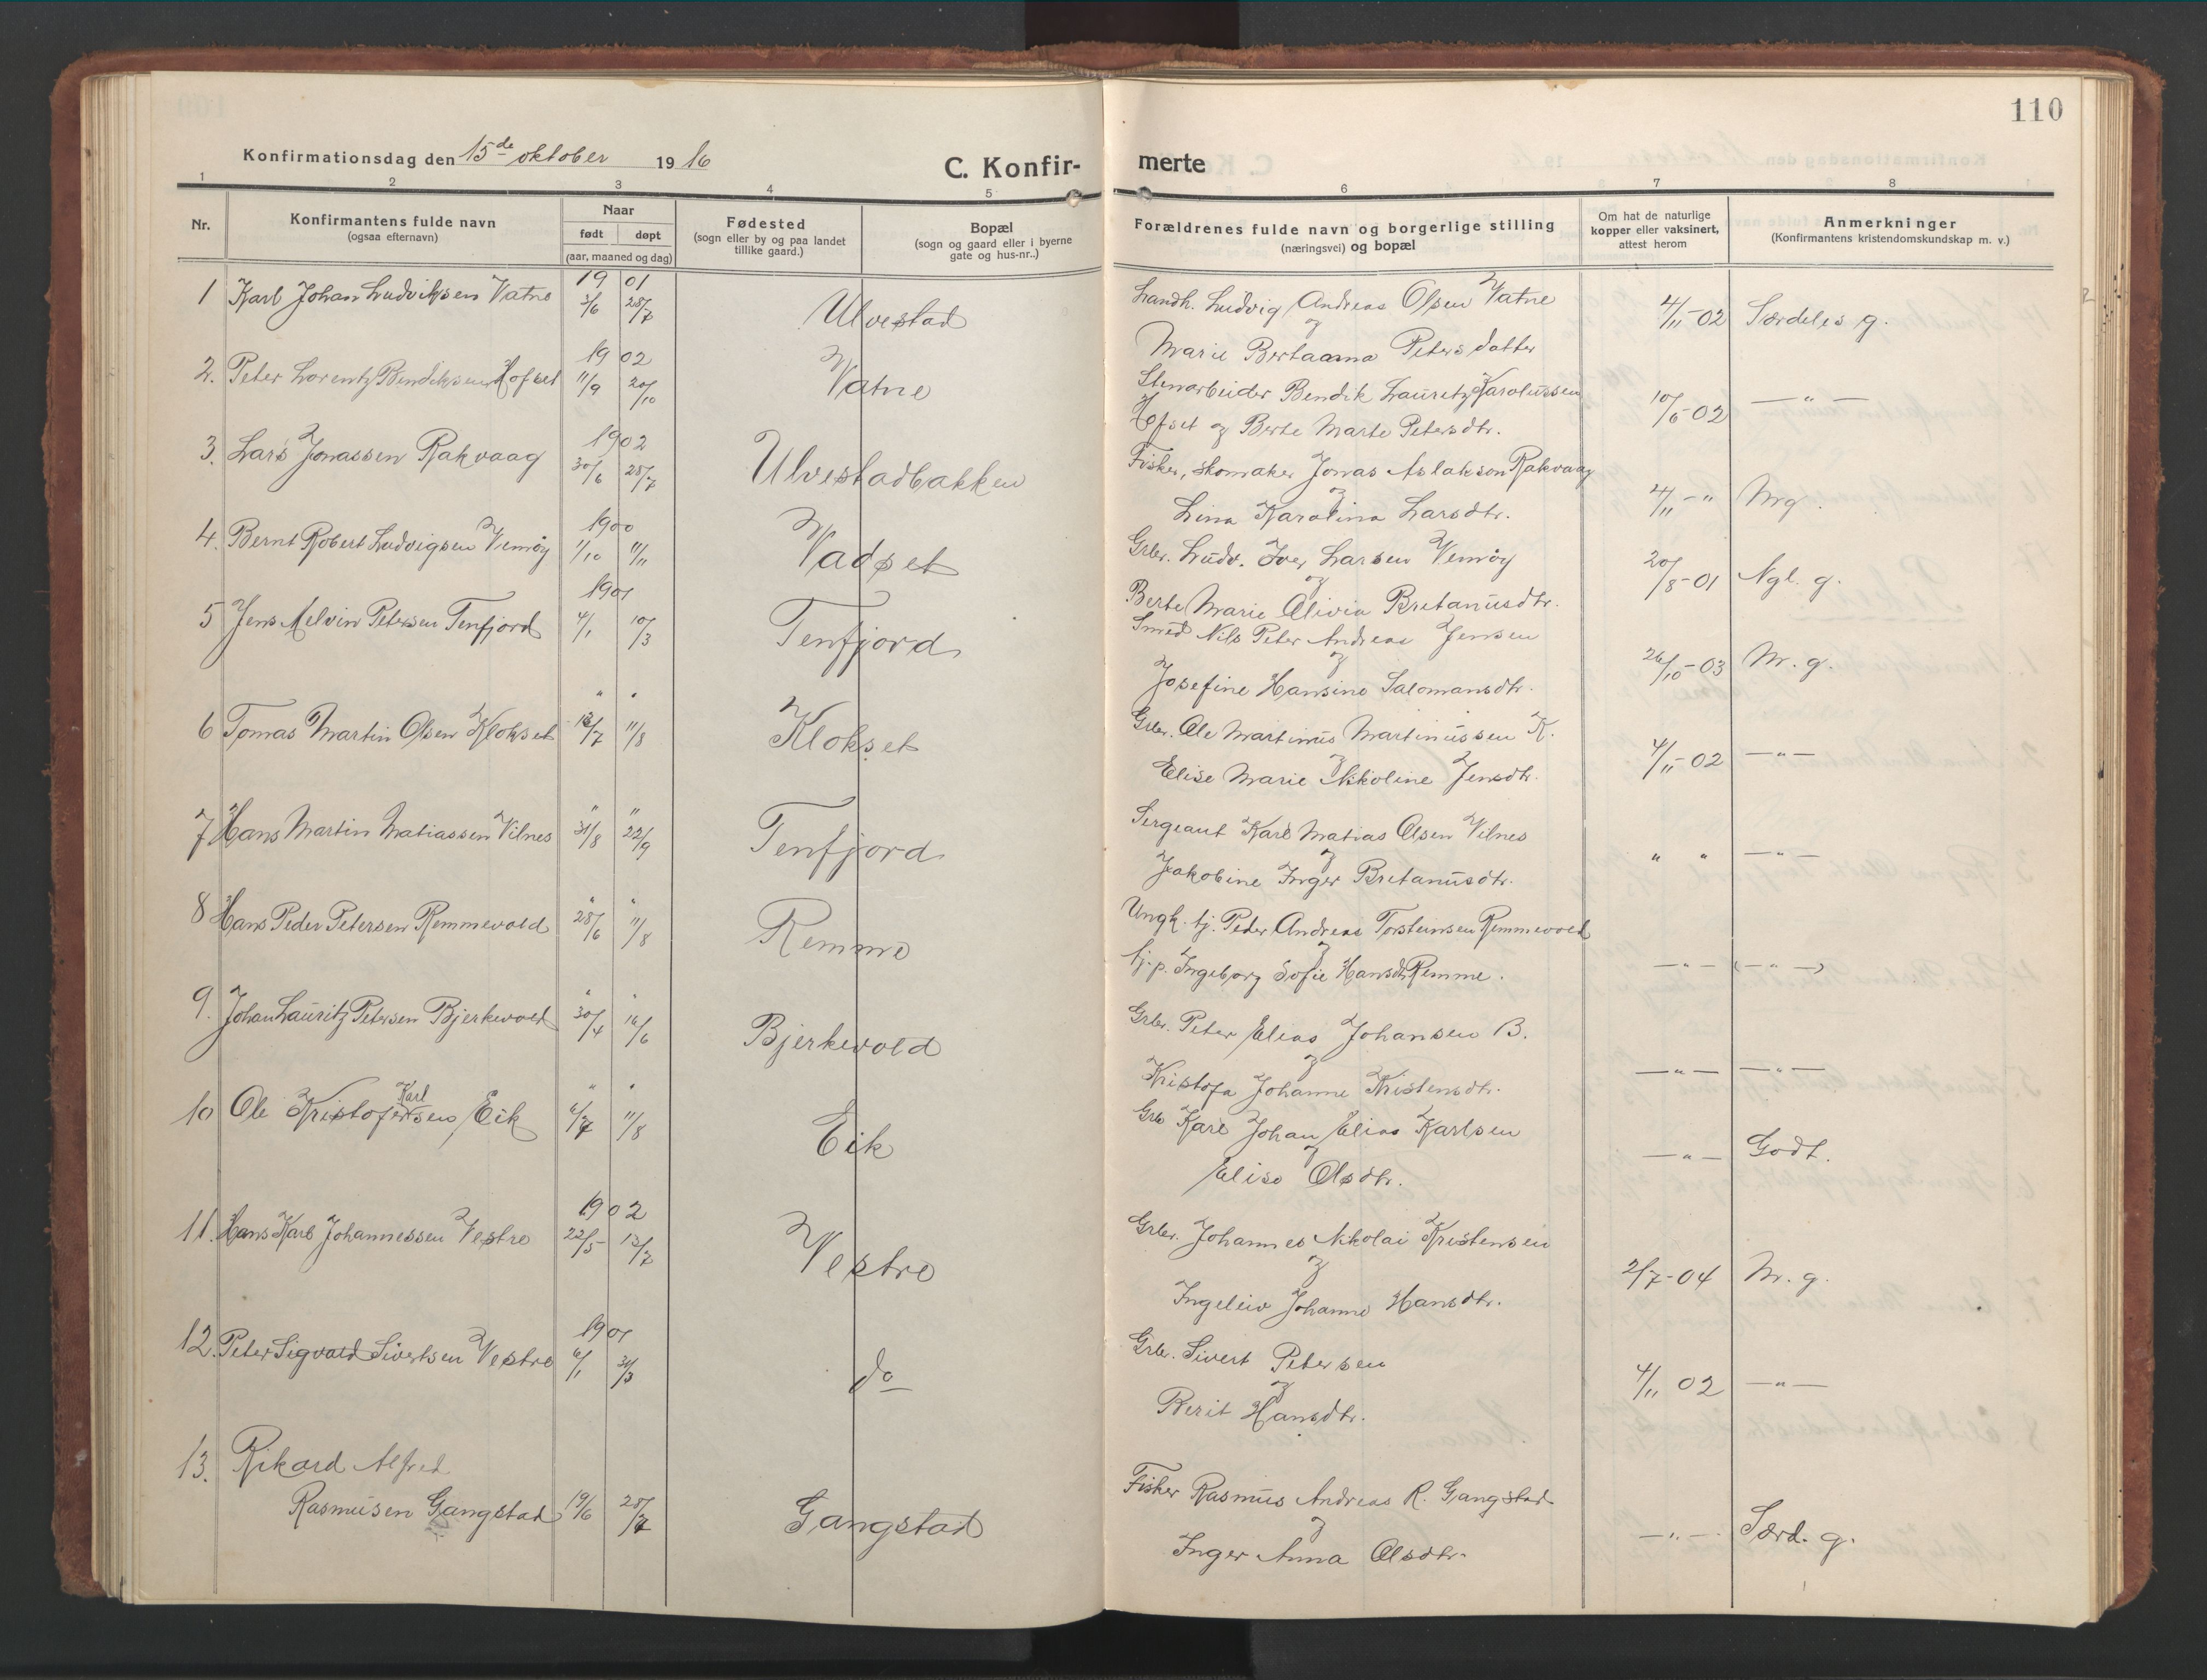 110
Konfirmationsdag den 15de oktober 1916
C. Konfir-
merte
1 2 3 4 5 6 7 8
Nr.
Konfirmantens fulde navn
(ogsaa efternavn)
Naar
født døpt
(aar, maaned og dag)
Fødested
(sogn eller by og paa landet
tillike gaard.)
Bopæl
(sogn og gaard eller i byerne
gate og hus-nr..)
Forældrenes fulde navn og borgerlige stilling
(næringsvei) og bopæl
Om hat de naturlige
kopper eller vaksinert,
attest herom
Anmerkninger
(Konfirmantens kristendomskundskap m. v.)
19 01
1 Karl Johan Ludviksen Vatne 3/6 28/7 Ulvestad
Landh. Ludvig Andreas Olsen Vatne
og
Marie Bertaanna Petersdatter
4/11-02 Særdeles g.
19 02
2. Peter Lorentz Bendiksen Hofset 11/9 20/10 Vatne
Stenarbeider Bendik Lauritz Karolussen
Hofset og Berte Marte Petersdtr.
10/6-02 — " —
1902
3. Lars Jonassen Rakvaag 30/6 28/7 Ulvestadbakken
Fisker, skomaker Jonas Aslakson Rakvaag
og
Lina Karolina Larsdtr.
4/11 - " Mrg.
1900
4. Bernt Robert Ludvigsen Vemøy 11/10 11/11 Vadset
Grbr. Ludv. Iver Larsen Vemøy
og
Berte Marie Olivia Bretanusdtr.
20/8-01 Ngl. g.
1901
5 Jens Melvin Petersen Tenfjord 4/1 10/3 Tenfjord
Smed Nils Peter Andreas Jensen
og
Josefine Hansine Salomonsdtr.
26/10-03 M. g.
" "
6 Tomas Martin Olsen Klokset 12/7 11/8 Klokset
Grbr. Ole Martinus Martinussen K.
og
Elise Marie Nikoline Jensdtr.
4/11-02 — " —
" "
7 Hans Martin Matiassen Vilnes 31/8 22/9 Tenfjord
Sergeant Karl Matias Olsen Vilnes
og
Jakobine Inger Bretanusdtr.
" " — " —
" "
8 Hans Peder Petersen Remmevold 28/6 11/8 Remme
Ungk. tj. Peder Andreas Torsteinsen Remmevold
og
tj. p. Ingeborg Sofie Hansdtr Remme.
— " — (— " —)
" "
9. Johan Lauritz Petersen Bjerkevold 30/4 16/6 Bjerkevold
Grbr. Peter Elias Johansen B.
og
Kristofa Johanne Kristensdtr.
— " — — " —
" "
Karl
10 Ole Kristofersen, Eik 6/7 11/8 Eik
Grb Karl Johan Elias Karlsen
og
Elise Olsdtr.
— " — Godt.
1902
11. Hans Karl Johannessen Vestre 22/5 13/7 Vestre
Grbr. Johannes Nikolai Kristensen
og
Ingeleiv Johanne Hansdtr.
2/7-04 M. g.
1901
12. Peter Sigvard Sivertsen Vestre 6/1 31/3 do
Grbr. Sivert Petersen
og
Berit Hansdtr.
4/11 02 — " —
13. Rikard Alfred
Rasmusen Gangstad 19/6 28/7 Gangstad
Fisker Rasmus Andreas R. Gangstad
og
Inger Anna Olsdtr.
— " — Særd. g.